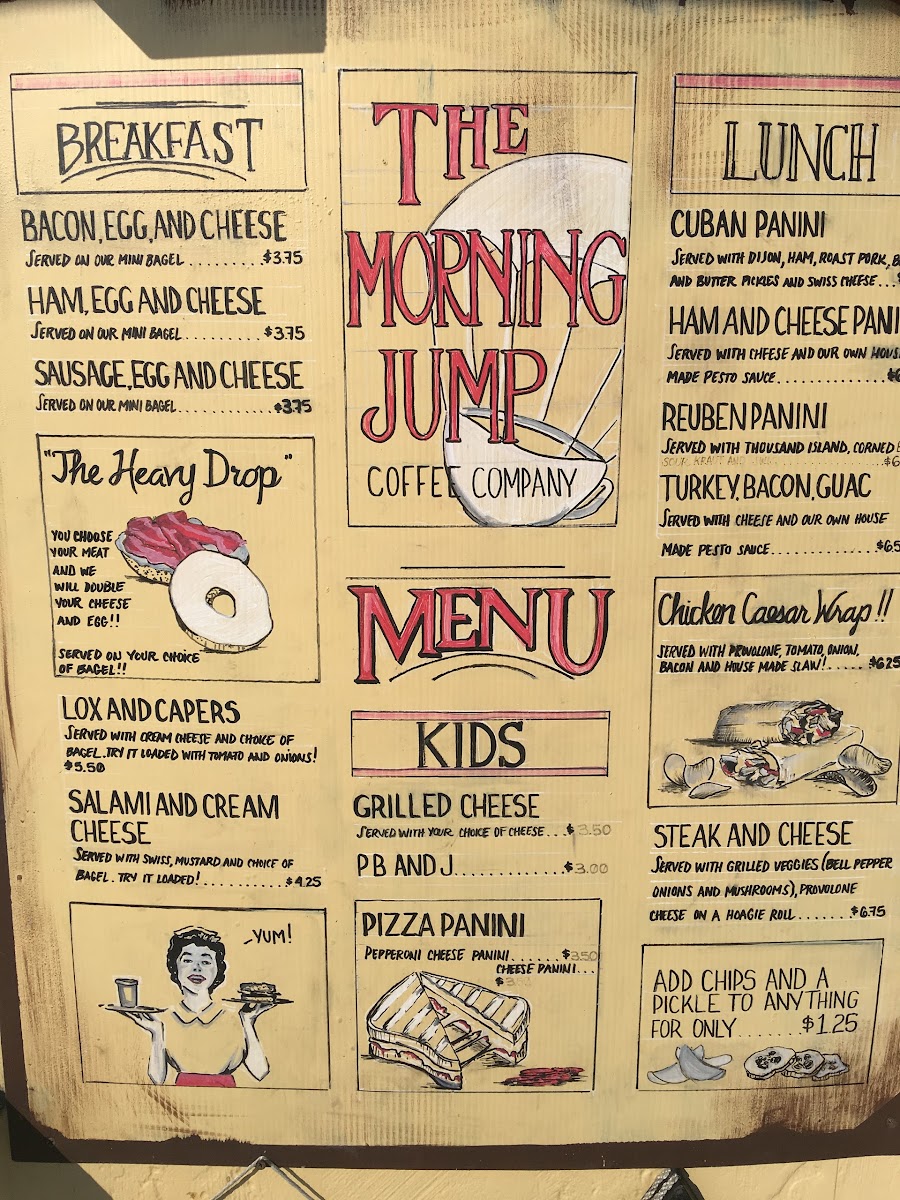 BREAKFAST
BACON, EGG, AND CHEESE
SERVED ON OUR MINI BAGEL ......... $3.75
HAM, EGG AND CHEESE
SERVED ON OUR MINI BAGEL ......... $3.75
SAUSAGE, EGG AND CHEESE
SERVED ON OUR MINI BAGEL ......... $3.75
"The Heavy Drop"
YOU CHOOSE
YOUR MEAT
AND WE
WILL DOUBLE
YOUR CHEESE
AND EGG!!
SERVED ON YOUR CHOICE
OF BAGEL!!
LOX AND CAPERS
SERVED WITH CREAM CHEESE AND CHOICE OF
BAGEL. TRY IT LOADED WITH TOMATO AND ONIONS!
$5.50
SALAMI AND CREAM
CHEESE
SERVED WITH SWISS, MUSTARD AND CHOICE OF
BAGEL. TRY IT LOADED! .......... $4.25
YUM!
THE
MORNING
JUMP
COFFEE COMPANY
MENU
KIDS
GRILLED CHEESE
SERVED WITH YOUR CHOICE OF CHEESE ... $3.50
P B AND J ............. $3.00
PIZZA PANINI
PEPPERONI CHEESE PANINI ...... $3.50
CHEESE PANINI ...
LUNCH
CUBAN PANINI
SERVED WITH DIJON, HAM, ROAST PORK,
AND BUTTER PICKLES AND SWISS CHEESE ...
HAM AND CHEESE PANI
SERVED WITH CHEESE AND OUR OWN HOUS
MADE PESTO SAUCE ............ $6
REUBEN PANINI
SERVED WITH THOUSAND ISLAND, CORNED
SOUR KRAUT AND ......... $6
TURKEY, BACON, GUAC
SERVED WITH CHEESE AND OUR OWN HOUSE
MADE PESTO SAUCE ............ $6.5
Chicken Caesar Wrap!!
SERVED WITH PROVOLONE, TOMATO, ONION,
BACON AND HOUSE MADE SLAW! ..... $6.25
STEAK AND CHEESE
SERVED WITH GRILLED VEGGIES (BELL PEPPER
ONIONS AND MUSHROOMS), PROVOLONE
CHEESE ON A HOAGIE ROLL ....... $6.75
ADD CHIPS AND A
PICKLE TO ANYTHING
FOR ONLY ...... $1.25